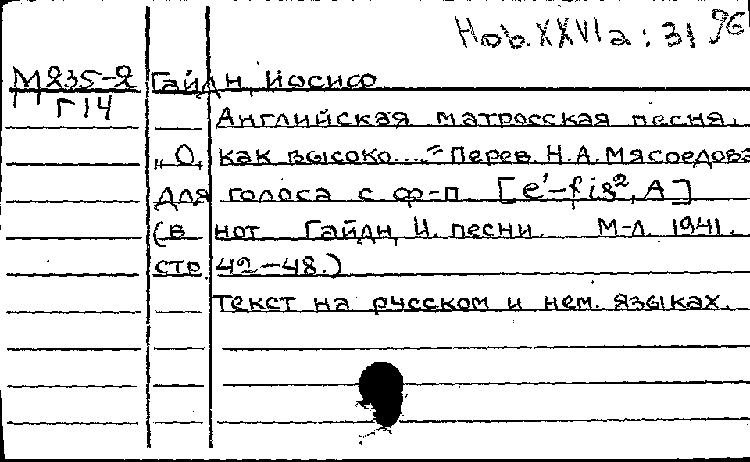 Hob. XXVIa : 31 96
М235-2 Гайдн, Иосиф
Г14
Английская матросская песня.
„О, как высоко...." Перев. Н.А. Мясоедова
для голоса с ф-п. [e'-fis², A]
(в нот Гайдн, И. песни. М-Л. 1941.
стр 42-48.)
Текст на русском и нем. языках.